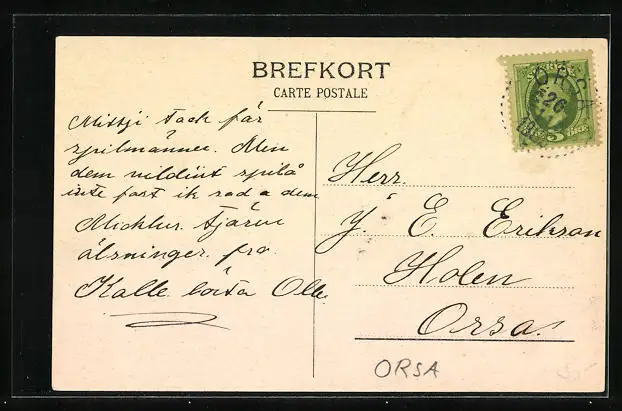 BREFKORT
CARTE POSTALE
ORSA
Mittji tack får
spilmänner. Men
dem vildint spilå
inte fast ik sad a dem
Micklur tjärvu
älsninger fra
Kalle borta Olle
Herr
J. E. Erikson
Holen
Orsa
ORSA